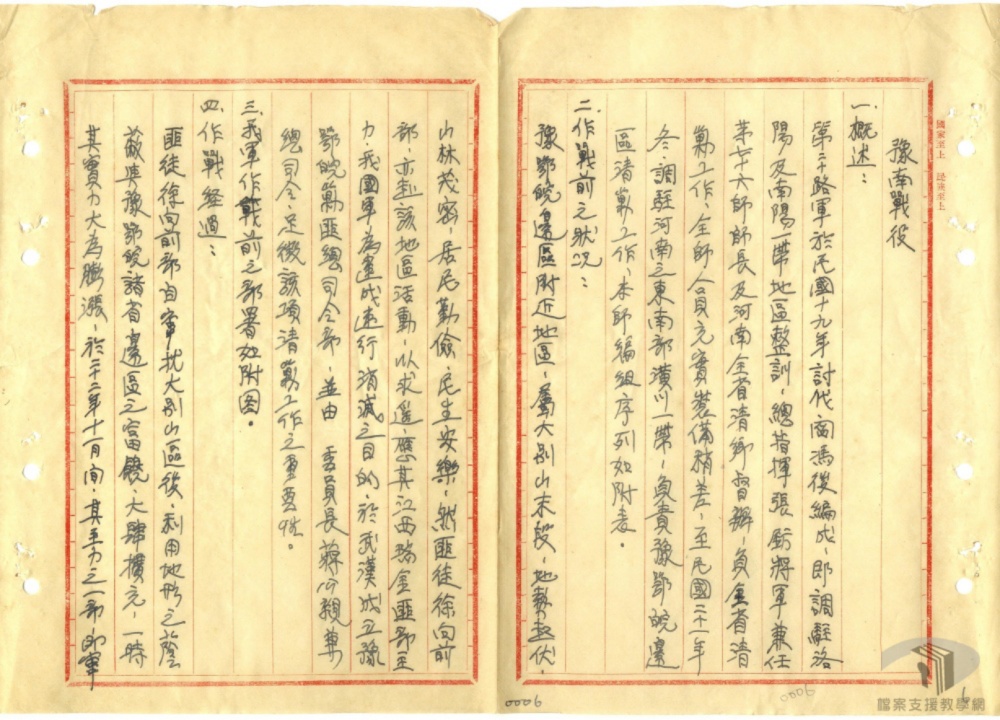 豫南戰役
一、概述：
第二十路軍於民國十九年討伐閻馮後編成，即調駐洛
陽及南陽一帶地區整訓，總指揮張 鈁將軍兼任
第七十六師師長及河南全省清鄉督辦，負全省清
剿工作，全師人員充實裝備稍差，至民國二十一年
冬，調駐河南之東南部潢川一帶，負責豫鄂皖邊
區清剿工作，本師編組序列如附表。
二、作戰前之狀況：
豫鄂皖邊區附近地區，屬大別山末段，地勢起伏，
山林茂密，居民勤儉，民生安樂，然匪徒徐向前
部，亦起該地區活動，以求遙應其江西瑞金匪部主
力，我國軍為達成遂行消滅之目的，於武漢成立豫
鄂皖剿匪總司令部，並由 委員長蔣公親兼
總司令，足徵該項清剿工作之重要性。
三、我軍作戰前之部署如附圖。
四、作戰經過：
匪徒徐向前部自竄扰大別山區後，利用地形之蔭
蔽與豫鄂皖諸省邊區之富饒，大肆擴充，一時
其實力大為膨漲，於二十二年十一月間，其主力之一部即竄
國家至上 民族至上
0006
0006
檔案支援教學網